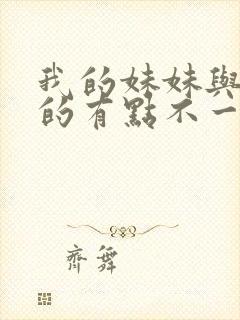 我的妹妹與
的有點不一
齊舞